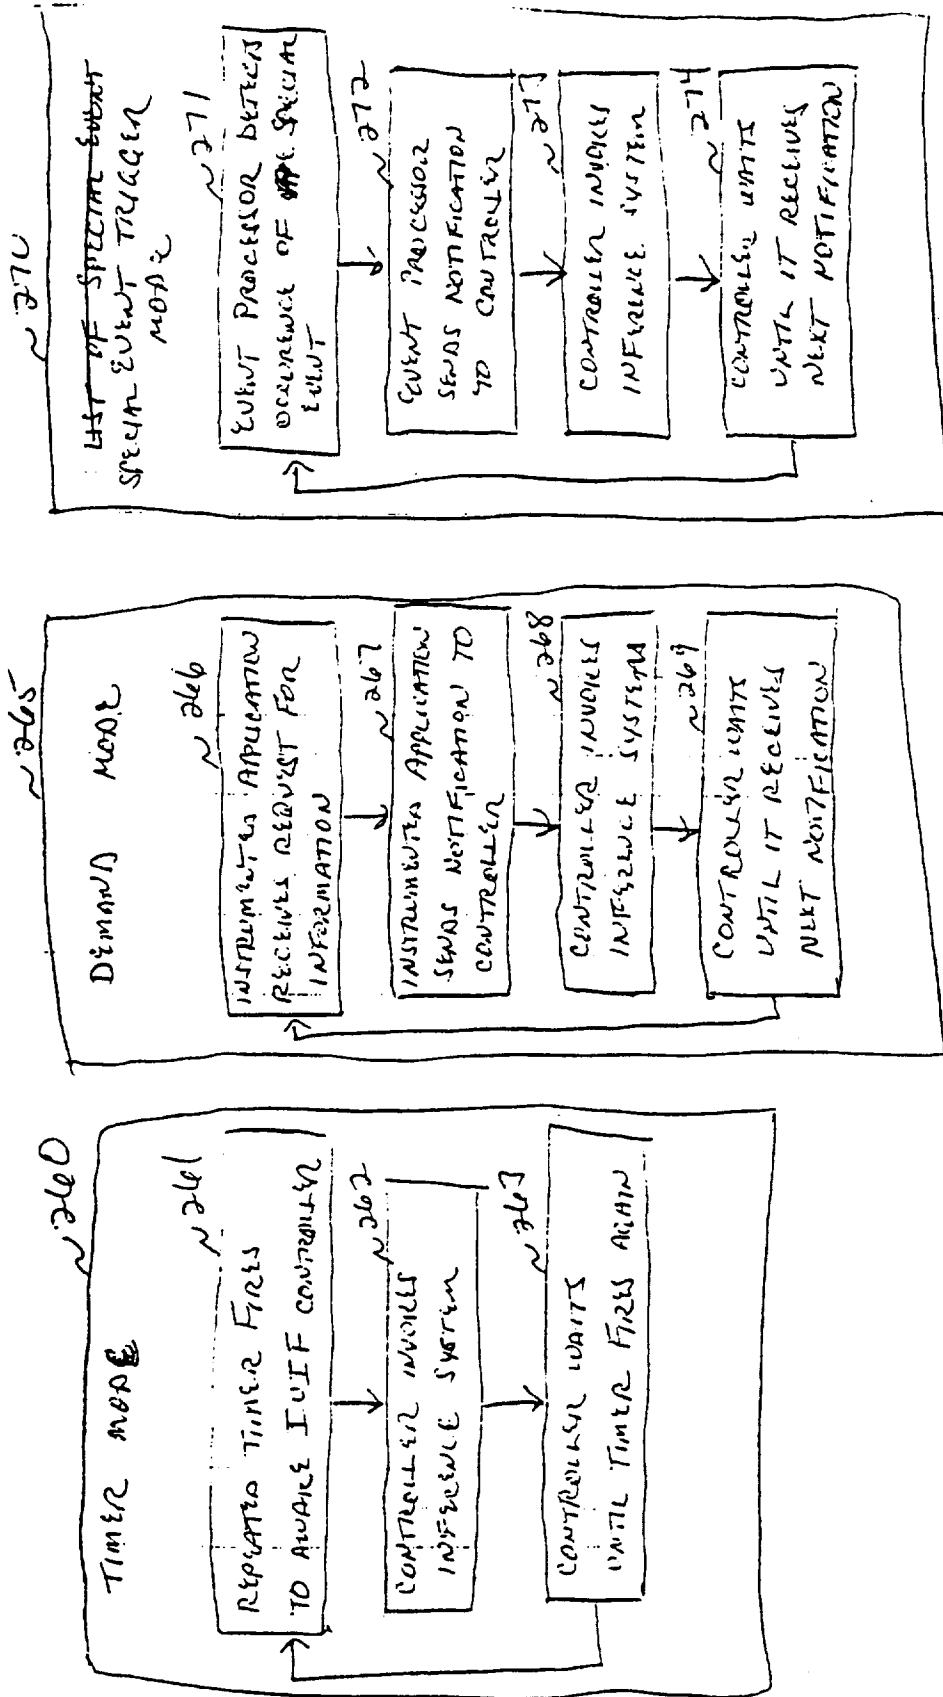 ~260
TIMER MODE
~261
REPEATED TIMER FIRES
TO AWAKE IUIF CONTROLLER
~262
CONTROLLER INVOKES
INFERENCE SYSTEM
~263
CONTROLLER WAITS
UNTIL TIMER FIRES AGAIN
~265
DEMAND MODE
~266
INSTRUMENTED APPLICATION
RECEIVES REQUEST FOR
INFORMATION
~267
INSTRUMENTED APPLICATION
SENDS NOTIFICATION TO
CONTROLLER
~268
CONTROLLER INVOKES
INFERENCE SYSTEM
~269
CONTROLLER WAITS
UNTIL IT RECEIVES
NEXT NOTIFICATION
~270
LIST OF SPECIAL EVENT
SPECIAL EVENT TRIGGER
MODE
~271
EVENT PROCESSOR DETECTS
OCCURENCE OF SPECIAL
EVENT
~272
EVENT PROCESSOR
SENDS NOTIFICATION
TO CONTROLLER
~273
CONTROLLER INVOKES
INFERENCE SYSTEM
~274
CONTROLLER WAITS
UNTIL IT RECEIVES
NEXT NOTIFICATION